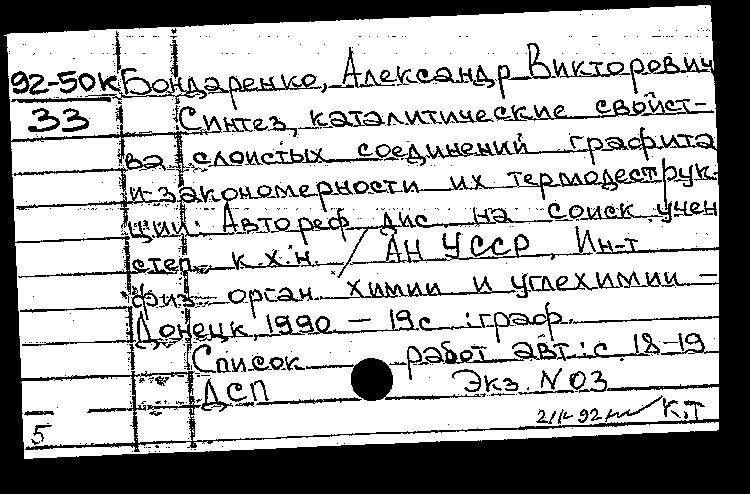 92-50К Бондаренко, Александр Викторович
33 Синтез, каталитические свойст-
ва слоистых соединений графита
и закономерности их термодеструк-
ции: Автореф дис. на соиск учен
степ. к.х.н. / АН УССР, Ин-т
физ орган химии и углехимии –
Донецк, 1990 – 19с :граф.
Список работ авт: с. 18-19
ДСП Экз. N 03
92 К,Т
5